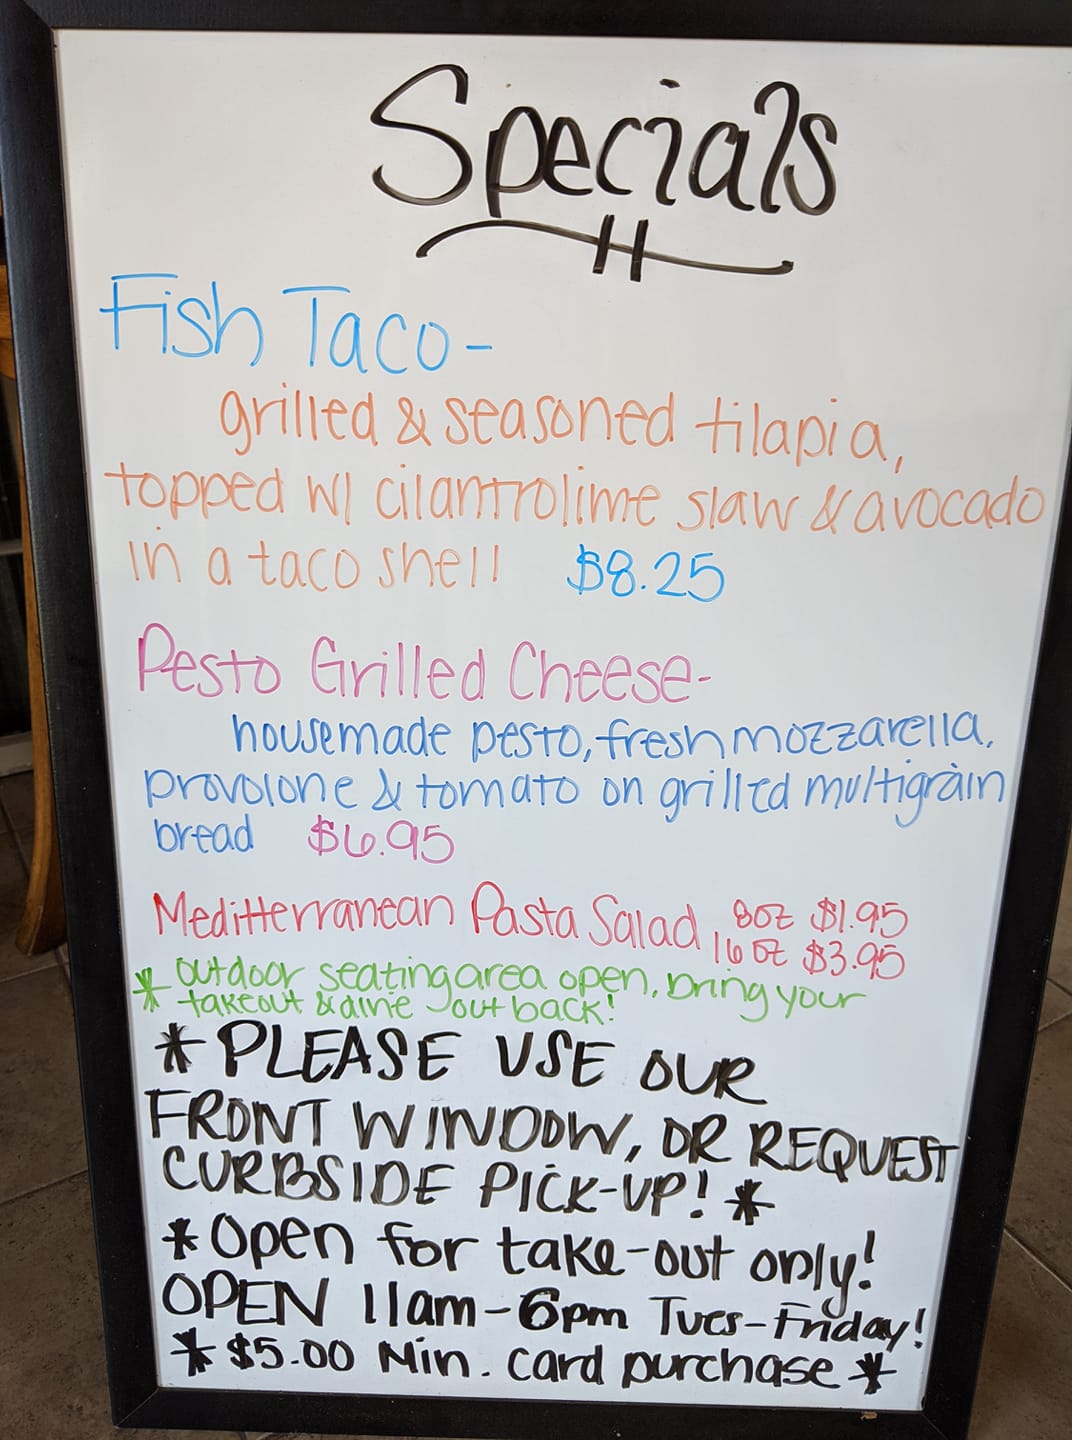 Specials
Fish Taco -
grilled & seasoned tilapia,
topped w/ cilantro lime slaw & avocado
in a taco shell $8.25
Pesto Grilled Cheese -
housemade pesto, fresh mozzarella,
provolone & tomato on grilled multigrain
bread $6.95
Mediterranean Pasta Salad 8oz $1.95
16oz $3.95
* outdoor seating area open, bring your
takeout & dine out back!
* PLEASE USE OUR
FRONT WINDOW, OR REQUEST
CURBSIDE PICK-UP! *
* Open for take-out only!
OPEN 11am - 6pm Tues - Friday!
* $5.00 Min. card purchase *